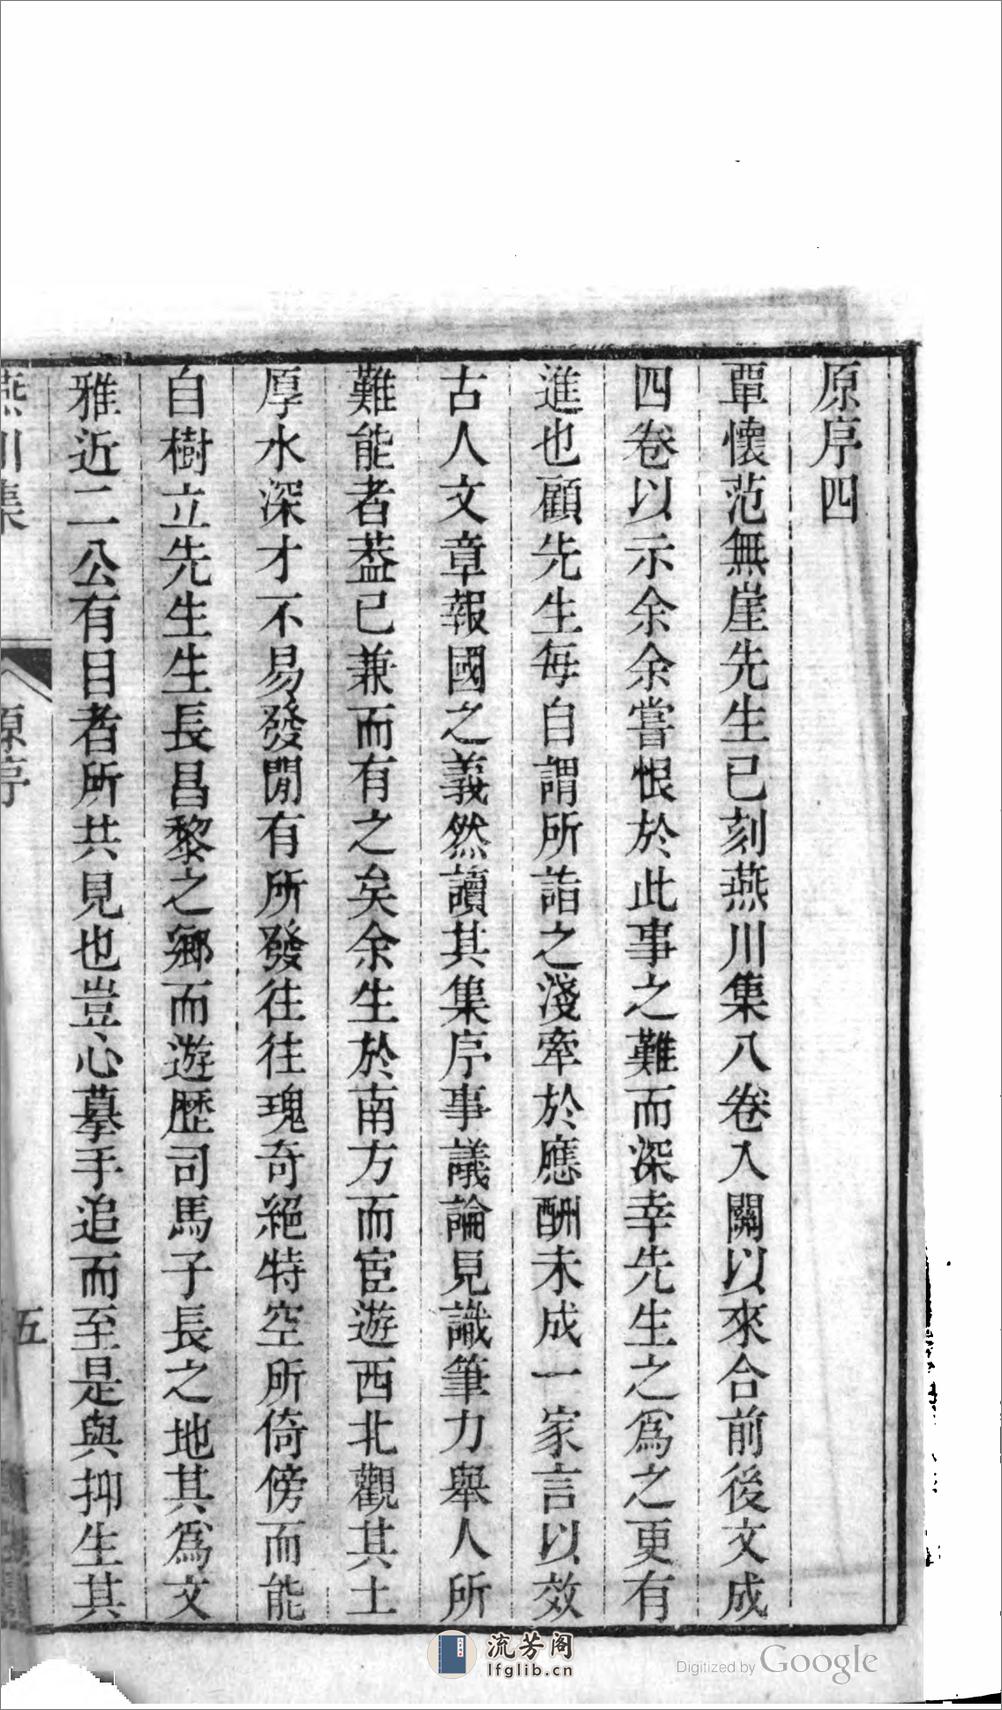 原序四
覃懷范無崖先生已刻燕川集八卷入關以來合前後文成
四卷以示余余嘗恨於此事之難而深幸先生之爲之更有
進也顧先生每自謂所詣之淺牽於應酬未成一家言以效
古人文章報國之義然讀其集序事議論見識筆力舉人所
難能者葢已兼而有之矣余生於南方而宦遊西北觀其土
厚水深才不易發閒有所發往往瑰奇絕特空所倚傍而能
自樹立先生生長昌黎之鄉而遊歷司馬子長之地其爲文
雅近二公有目者所共見也豈心摹手追而至是與抑生其
燕川集
原序
五
流芳阁
lfglib.cn
Digitized by Google